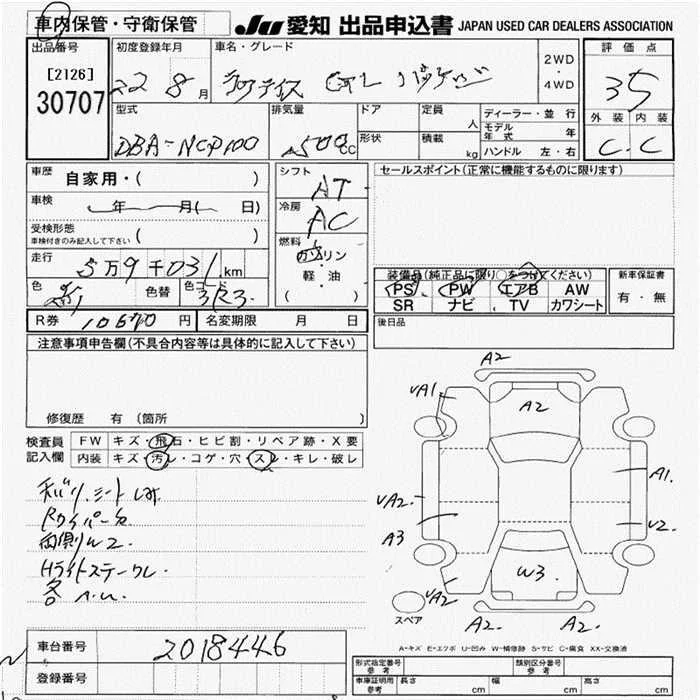 車内保管・守衛保管
JU 愛知 出品申込書 JAPAN USED CAR DEALERS ASSOCIATION
出品番号
[2126]
30707
初度登録年月
22 8月
車名・グレード
2WD
・
4WD
評価点
35
外装 内装
C C
型式
DBA-NCP100
排気量
1500CC
ドア
形状
定員
人
積載
kg
ディーラー・並行
モデル年式 年
ハンドル 左・右
車歴
自家用・( )
車検
年 月( 日)
受検形態
車検付きのみ記入して下さい ( )
走行
5万9千031km
色
色替
色コード
3R3
R券 10670円
名変期限 月 日
シフト
AT
冷房
AC
燃料
ガソリン
・
軽・油
( )
セールスポイント(正常に機能するものに限ります)
装備品(純正品に限り○をつけてください)
PS PW エアB AW
SR ナビ TV カワシート
新車保証書
有・無
後日品
注意事項申告欄(不具合内容等は具体的に記入して下さい)
修復歴 有 (箇所 )
検査員
記入欄
FW キズ・飛石・ヒビ割・リペア跡・X要
内装 キズ・汚レ・コゲ・穴・スレ・キレ・破レ
Rワイパー欠
両側W2
Hライトステークレ
各
A2
A2
A1
A1
A2
U2
A3
W3
A2
A2
A2
スペア
A-キズ E-エクボ U-凹み W-補修跡 S-サビ C-腐食 XX-交換済
車台番号
2018446
登録番号
形式指定番号
参考
類別区分番号
車庫証明用
参考
長さ cm 幅 cm 高さ cm